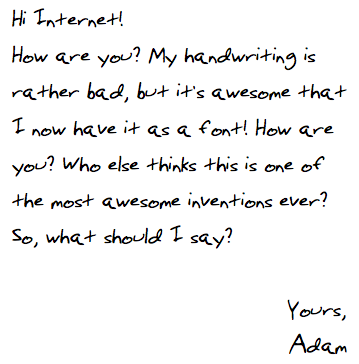 Hi Internet!
How are you? My handwriting is
rather bad, but it's awesome that
I now have it as a font! How are
you? Who else thinks this is one of
the most awesome inventions ever?
So, what should I say?
Yours,
Adam